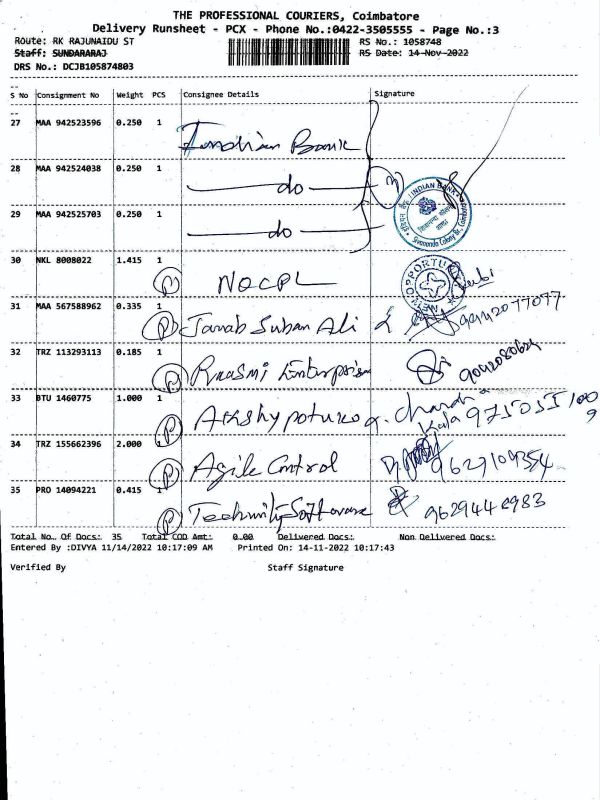 THE PROFESSIONAL COURIERS, Coimbatore
Delivery Runsheet - PCX - Phone No.:0422-3505555 - Page No.:3
Route: RK RAJUNAIDU ST RS No.: 1058748
Staff: SUNDARARAJ RS Date: 14-Nov-2022
DRS No.: DCJB105874803
S No Consignment No Weight PCS Consignee Details Signature
27 MAA 942523596 0.250 1 Indian Bank
28 MAA 942524038 0.250 1 do
INDIAN BANK
29 MAA 942525703 0.250 1 do
Sivananda Colony Br. Coimbatore
30 NKL 8008022 1.415 1 NOCPL
31 MAA 567588962 0.335 1 P Janab Suban Ali
32 TRZ 113293113 0.185 1 P Enterprises
33 BTU 1460775 1.000 1 P
34 TRZ 155662396 2.000 P Agile Control 9629109354
35 PRO 14094221 0.415 1 P Software
Total No. Of Docs: 35 Total COD Amt: 0.00 Delivered Docs: Non Delivered Docs:
Entered By :DIVYA 11/14/2022 10:17:09 AM Printed On: 14-11-2022 10:17:43
Verified By Staff Signature